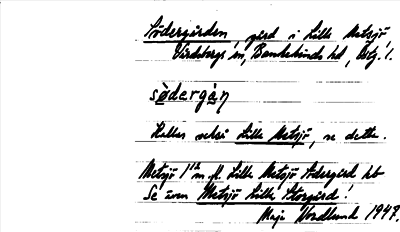 Södergården, gård i Lilla Metsjö,
Vårdsbergs sn, Bankekinds hd, Östg. l.
södergå̀ṇ
Kallas också Lilla Metsjö, se detta.
Metsjö 1 m fl. Lilla Metsjö Södergård
Se även Metsjö Lilla Storgård!
Maja Nordlund 1947.